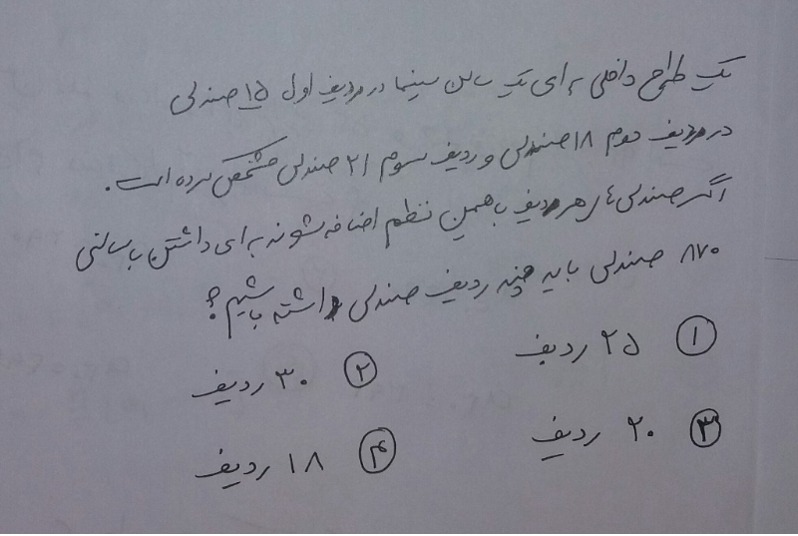 یک طراح داخلی برای یک سالن سینما در ردیف اول ۱۵ صندلی
در ردیف دوم ۱۸ صندلی و ردیف سوم ۲۱ صندلی مشخص کرده است.
اگر صندلی های هر ردیف با همین نظم اضافه شوند برای داشتن با سالنی
۸۷۰ صندلی باید چند ردیف صندلی داشته باشیم؟
۱ ۲۵ ردیف ۲ ۳۰ ردیف
۳ ۲۰ ردیف ۴ ۱۸ ردیف